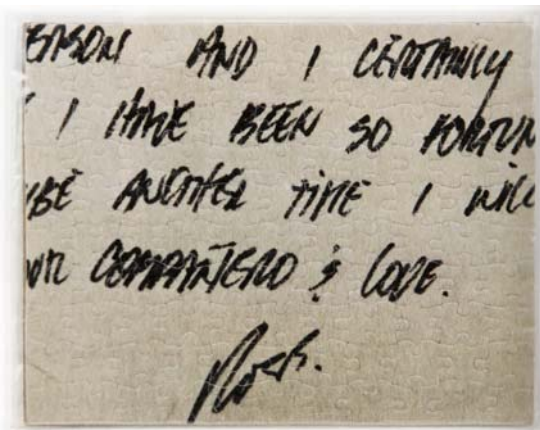 EASON AND I CERTAINLY
I HAVE BEEN SO FORTUN
YBE ANOTHER TIME I WILL
OUR COMPAÑERO & LOVE.
Ross.